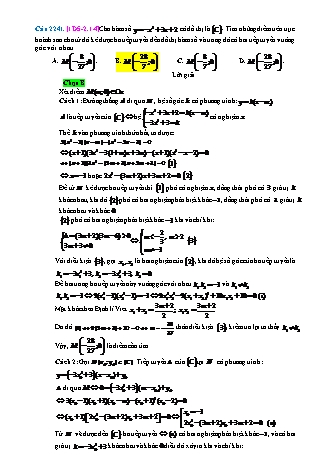 Câu 2241. [1D5-2.1-4] Cho hàm số y = -x³ + 3x + 2 có đồ thị là (C). Tìm những điểm trên trục
hoành sao cho từ đó kẻ được ba tiếp tuyến đến đồ thị hàm số và trong đó có hai tiếp tuyến vuông
góc với nhau.
A. M(8/27;0). B. M(-28/27;0). C. M(-8/27;0). D. M(28/27;0).
Lời giải
Chọn B
Xét điểm M(m;0) ∈ Ox.
Cách 1: Đường thẳng d đi qua M, hệ số góc k có phương trình: y = k(x-m).
d là tiếp tuyến của (C) ⇔ hệ { -x³+3x+2 = k(x-m) ; -3x²+3 = k có nghiệm x
Thế k vào phương trình thứ nhất, ta được:
⇔ (x+1)(3x²-3(1+m)x+3m)-(x+1)(x²-x-2)=0
⇔ (x+1)[2x²-(3m+2)x+3m+2]=0 (1)
⇔ x=-1 hoặc 2x²-(3m+2)x+3m+2=0 (2)
Để từ M kẻ được ba tiếp tuyến thì (1) phải có nghiệm x, đồng thời phải có 3 giá trị k
khác nhau, khi đó (2) phải có hai nghiệm phân biệt khác -1, đồng thời phải có 2 giá trị k
khác nhau và khác 0
(2) phải có hai nghiệm phân biệt khác -1 khi và chỉ khi:
{ Δ=(3m+2)(3m-6)>0 ; 3m+3≠0 ⇔ { m<-2/3, m>2 ; m≠-1 (3)
Với điều kiện (3), gọi x₁, x₂ là hai nghiệm của (2), khi đó hệ số góc của ba tiếp tuyến là
k₁=-3x₁²+3, k₂=-3x₂²+3, k₃=0.
Để hai trong ba tiếp tuyến này vuông góc với nhau k₁.k₂=-1 và k₁≠k₂
Mặt khác theo Định lí Viet x₁+x₂=(3m+2)/2; x₁x₂=(3m+2)/2.
Do đó (i) ⇔ 9(3m+2)+10=0 ⇔ m=-28/27 thỏa điều kiện (3), kiểm tra lại ta thấy k₁≠k₂
Vậy, M(-28/27;0) là điểm cần tìm.
Cách 2: Gọi N(x₀;y₀) ∈ (C). Tiếp tuyến Δ của (C) tại N có phương trình:
y=(-3x₀²+3)(x-x₀)+y₀.
Δ đi qua M ⇔ 0=(-3x₀²+3)(m-x₀)+y₀
⇔ 3(x₀-1)(x₀+1)(x₀-m)-(x₀+1)²(x₀-2)=0
⇔ (x₀+1)[2x₀²-(3m+2)x₀+3m+2]=0 ⇔ [ x₀=-1 ; 2x₀²-(3m+2)x₀+3m+2=0 (a)
Từ M vẽ được đến (C) ba tiếp tuyến ⇔ (a) có hai nghiệm phân biệt khác -1, và có hai
giá trị k=-3x₀²+3 khác nhau và khác 0 điều đó xảy ra khi và chỉ khi: